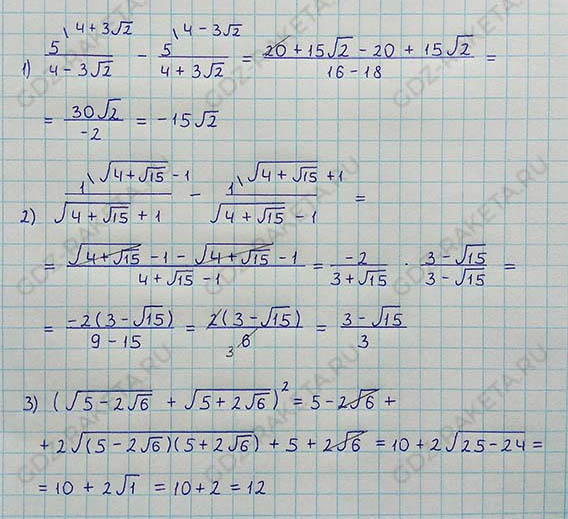 1) 5\4+3√2/(4-3√2) - 5\4-3√2/(4+3√2) = (20+15√2-20+15√2)/(16-18) =
= 30√2/-2 = -15√2
2) 1\√(4+√15)-1/(√(4+√15)+1) - 1\√(4+√15)+1/(√(4+√15)-1) =
= (√(4+√15)-1-√(4+√15)-1)/(4+√15-1) = -2/(3+√15) · (3-√15)/(3-√15) =
= -2(3-√15)/(9-15) = 2(3-√15)/6 3 = (3-√15)/3
3) (√(5-2√6) + √(5+2√6))² = 5-2√6 +
+ 2√((5-2√6)(5+2√6)) + 5 + 2√6 = 10 + 2√(25-24) =
= 10 + 2√1 = 10+2 = 12
GDZ-RAKETA.RU